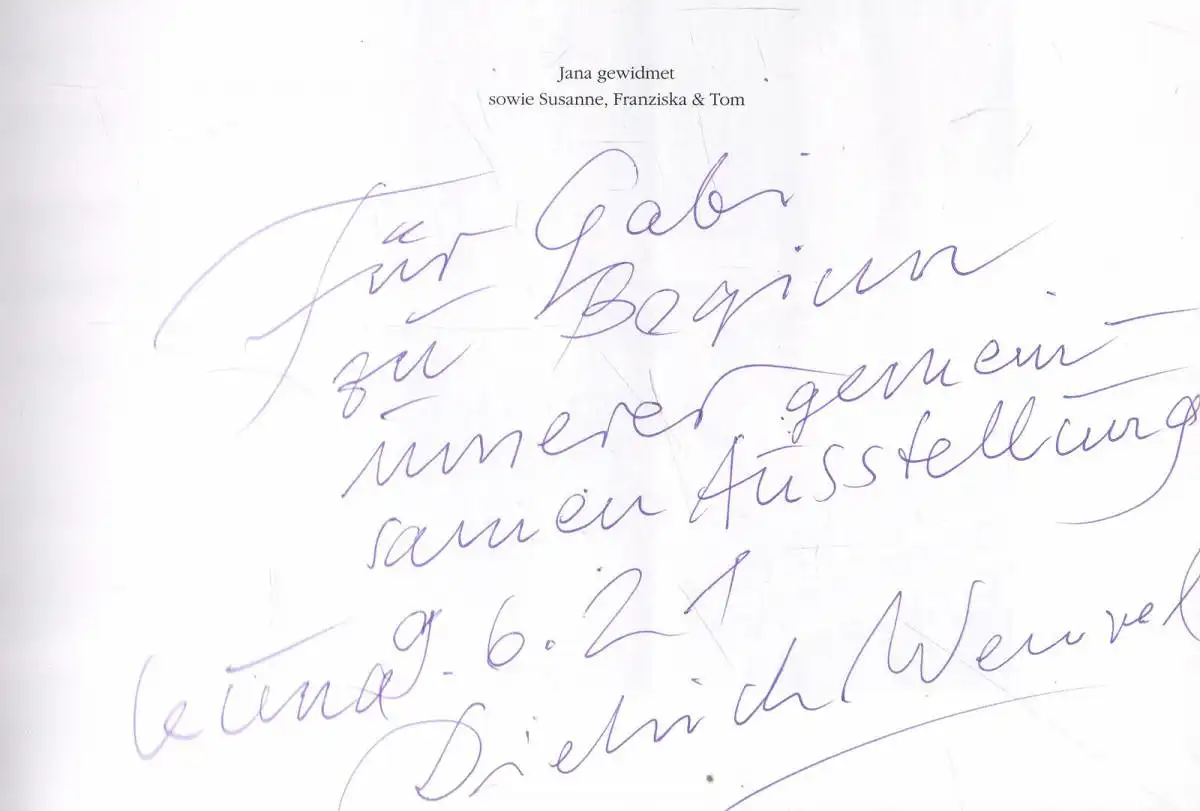 Jana gewidmet
sowie Susanne, Franziska & Tom
Für Gabi
zu Beginn
unserer gemein
samen Ausstellung
9.6.21
Dietrich